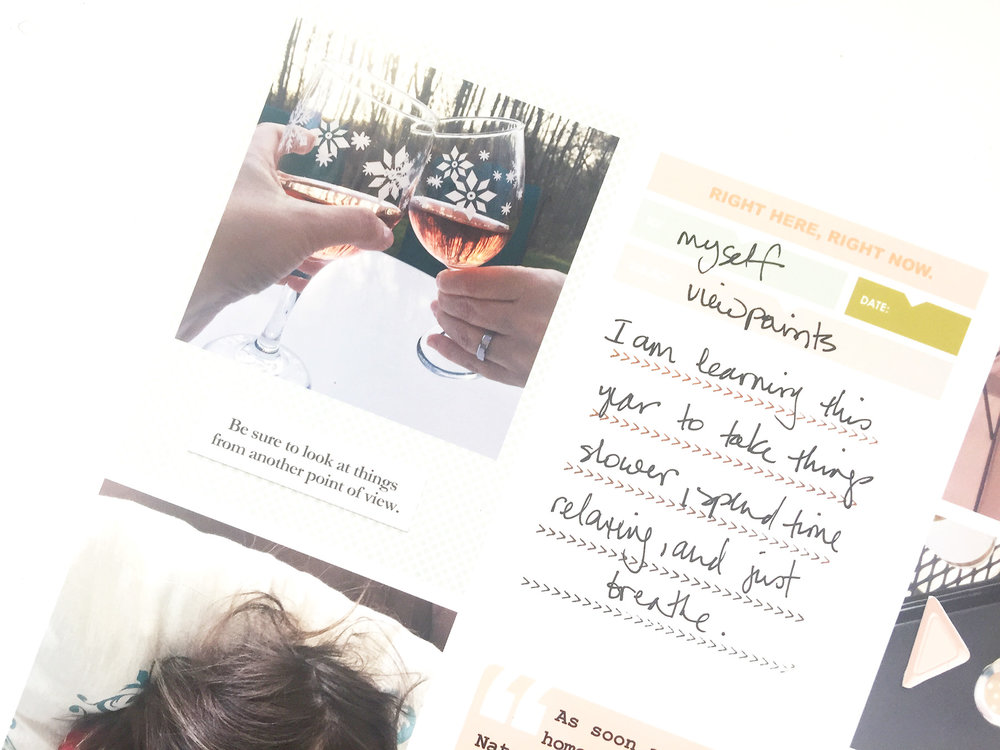 Be sure to look at things
from another point of view.
RIGHT HERE, RIGHT NOW.
DATE:
myself
viewpoints
I am learning this
year to take things
slower, spend time
relaxing, and just
breathe.
As soon